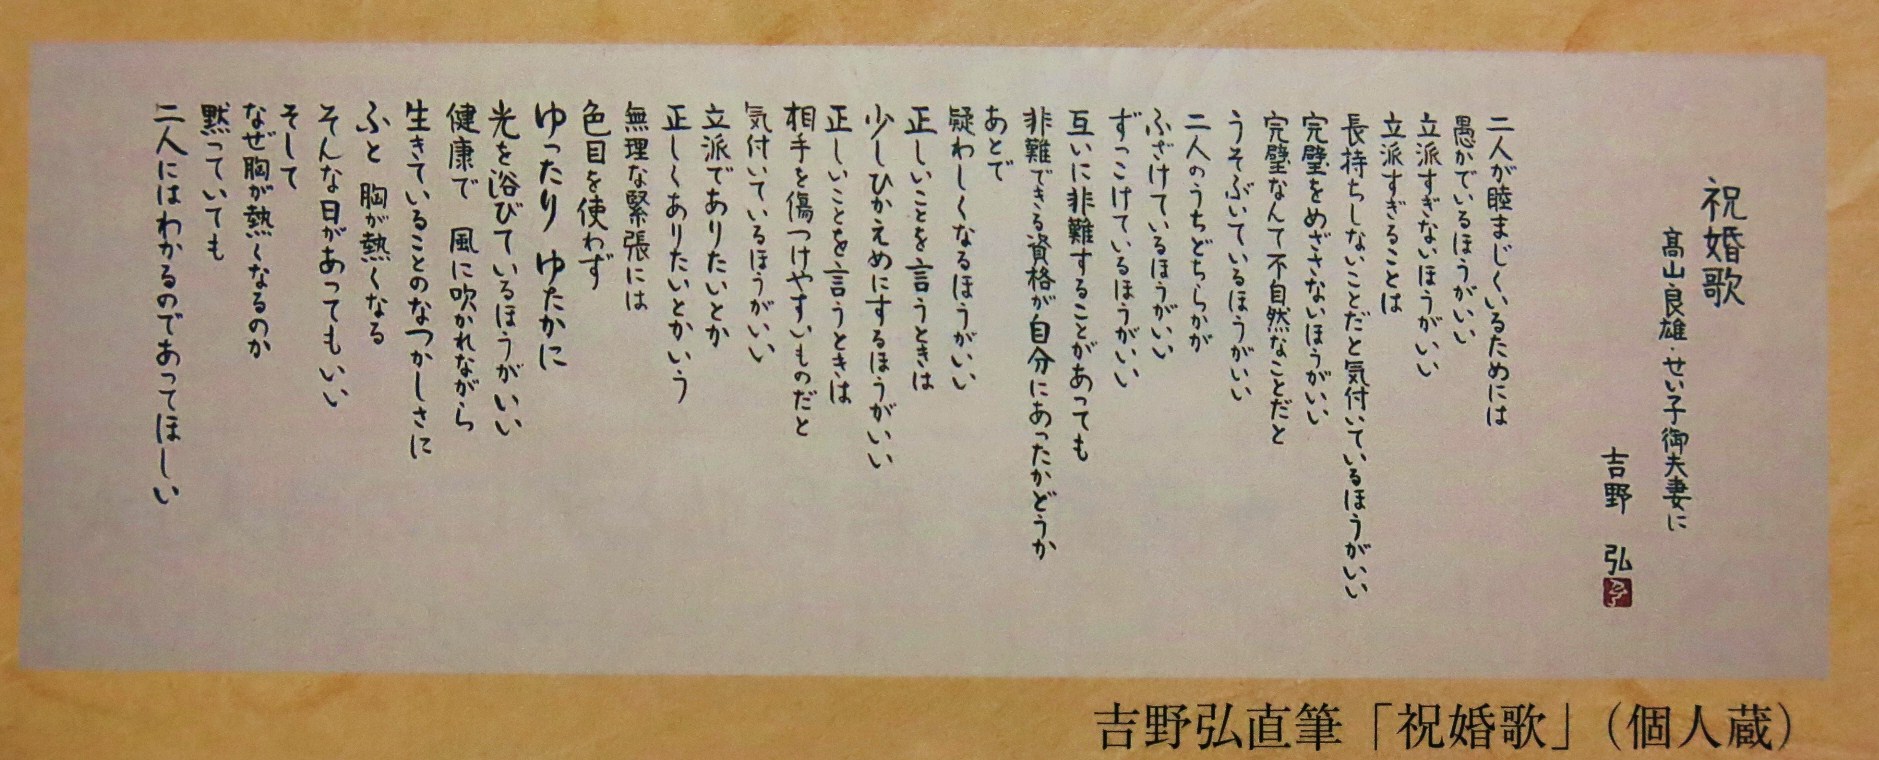 祝婚歌
髙山良雄・せい子御夫妻に
吉野 弘
二人が睦まじくいるためには
愚かでいるほうがいい
立派すぎないほうがいい
立派すぎることは
長持ちしないことだと気付いているほうがいい
完璧をめざさないほうがいい
完璧なんて不自然なことだと
うそぶいているほうがいい
二人のうちどちらかが
ふざけているほうがいい
ずっこけているほうがいい
互いに非難することがあっても
非難できる資格が自分にあったかどうか
あとで
疑わしくなるほうがいい
正しいことを言うときは
少しひかえめにするほうがいい
正しいことを言うときは
相手を傷つけやすいものだと
気付いているほうがいい
立派でありたいとか
正しくありたいとかいう
無理な緊張には
色目を使わず
ゆったり ゆたかに
光を浴びているほうがいい
健康で 風に吹かれながら
生きていることのなつかしさに
ふと 胸が熱くなる
そんな日があってもいい
そして
なぜ胸が熱くなるのか
黙っていても
二人にはわかるのであってほしい
吉野弘直筆「祝婚歌」（個人蔵）